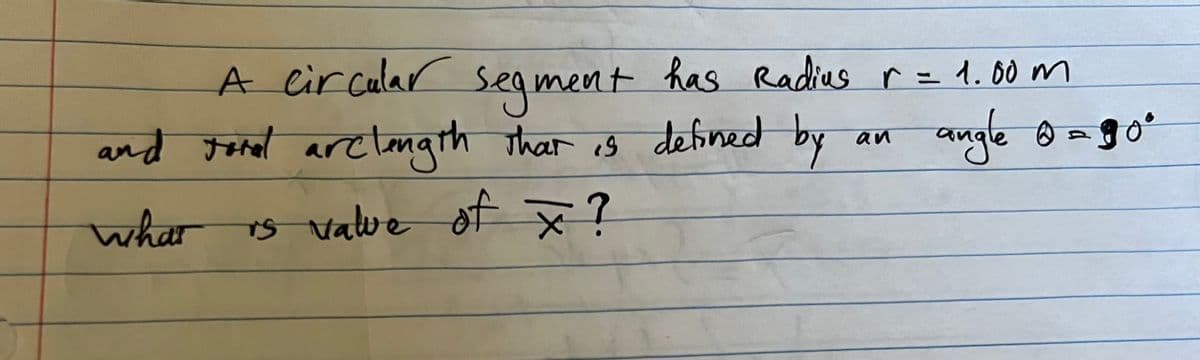 A circular segment has Radius r = 1.00 m
and total arclength that is defined by an angle θ = 90°
what is value of x̅ ?